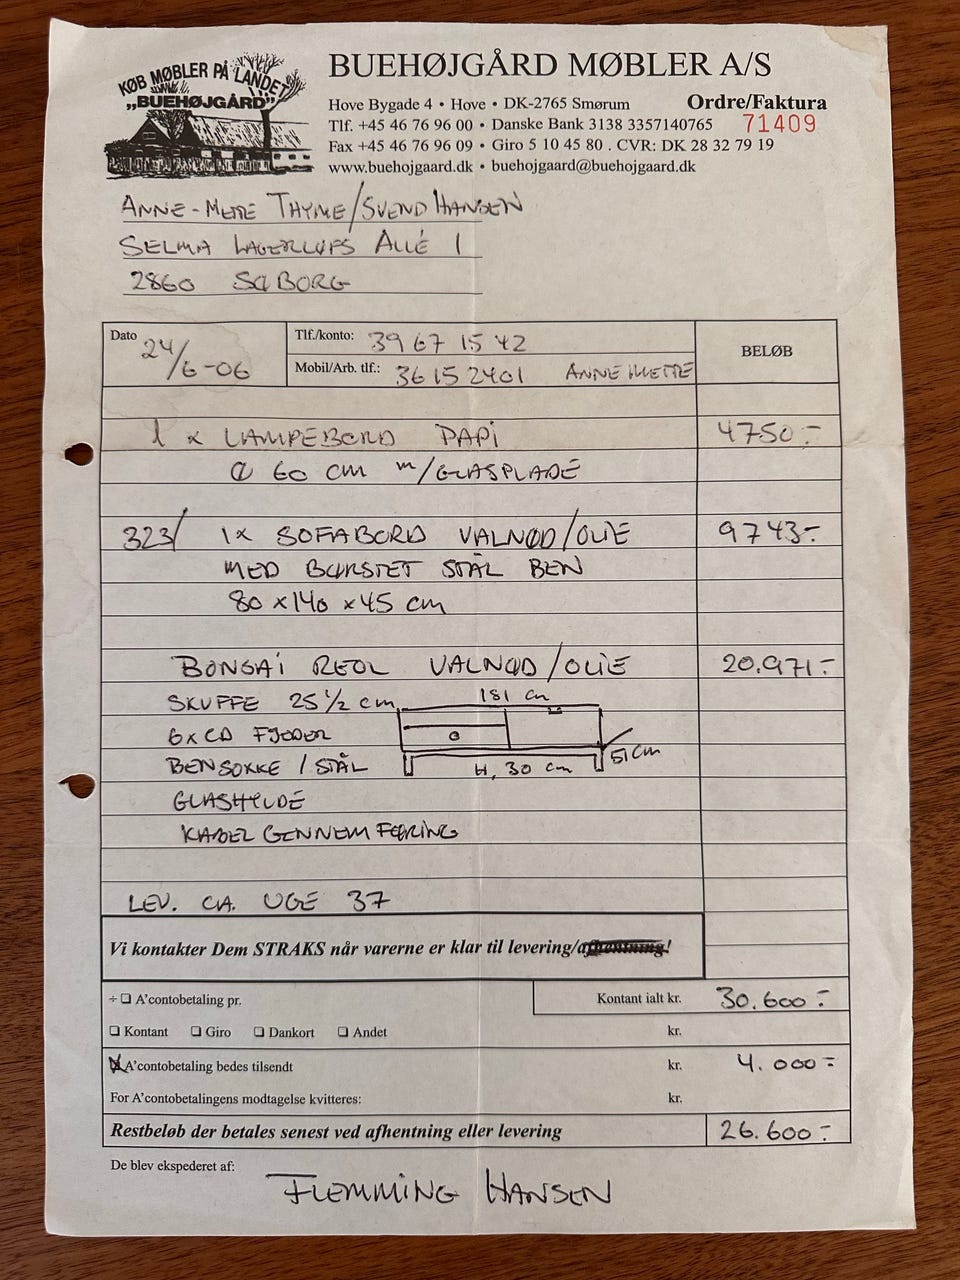 KØB MØBLER PÅ LANDET
„BUEHØJGÅRD”
BUEHØJGÅRD MØBLER A/S
Hove Bygade 4 • Hove • DK-2765 Smørum
Ordre/Faktura
Tlf. +45 46 76 96 00 • Danske Bank 3138 3357140765
71409
Fax +45 46 76 96 09 • Giro 5 10 45 80 . CVR: DK 28 32 79 19
www.buehojgaard.dk • buehojgaard@buehojgaard.dk
ANNE-METTE THYME/SVEND HANSEN
SELMA LAGERLØFS ALLÉ 1
2860 SØBORG
Dato 24/6-06
Tlf./konto: 39 67 15 42
BELØB
Mobil/Arb. tlf.: 36 15 2401 ANNE METTE
1 x LAMPEBORD PAPI 4750.-
Ø 60 CM m/GLASPLADE
323/ 1x SOFABORD VALNØD/OLIE 9743.-
MED BØRSTET STÅL BEN
80 x 140 x 45 cm
BONSAI REOL VALNØD/OLIE 20.971.-
SKUFFE 25 1/2 cm 181 cm
6xCD FJEDER
BENSOKKE / STÅL H. 30 cm 51 cm
GLASHYLDE
KABEL GENNEMFØRING
LEV. CA. UGE 37
Vi kontakter Dem STRAKS når varerne er klar til levering/afhentning!
÷ ☐ A'contobetaling pr. Kontant ialt kr. 30.600.-
☐ Kontant ☐ Giro ☐ Dankort ☐ Andet kr.
☒ A'contobetaling bedes tilsendt kr. 4.000.-
For A'contobetalingens modtagelse kvitteres: kr.
Restbeløb der betales senest ved afhentning eller levering 26.600.-
De blev ekspederet af:
FLEMMING HANSEN